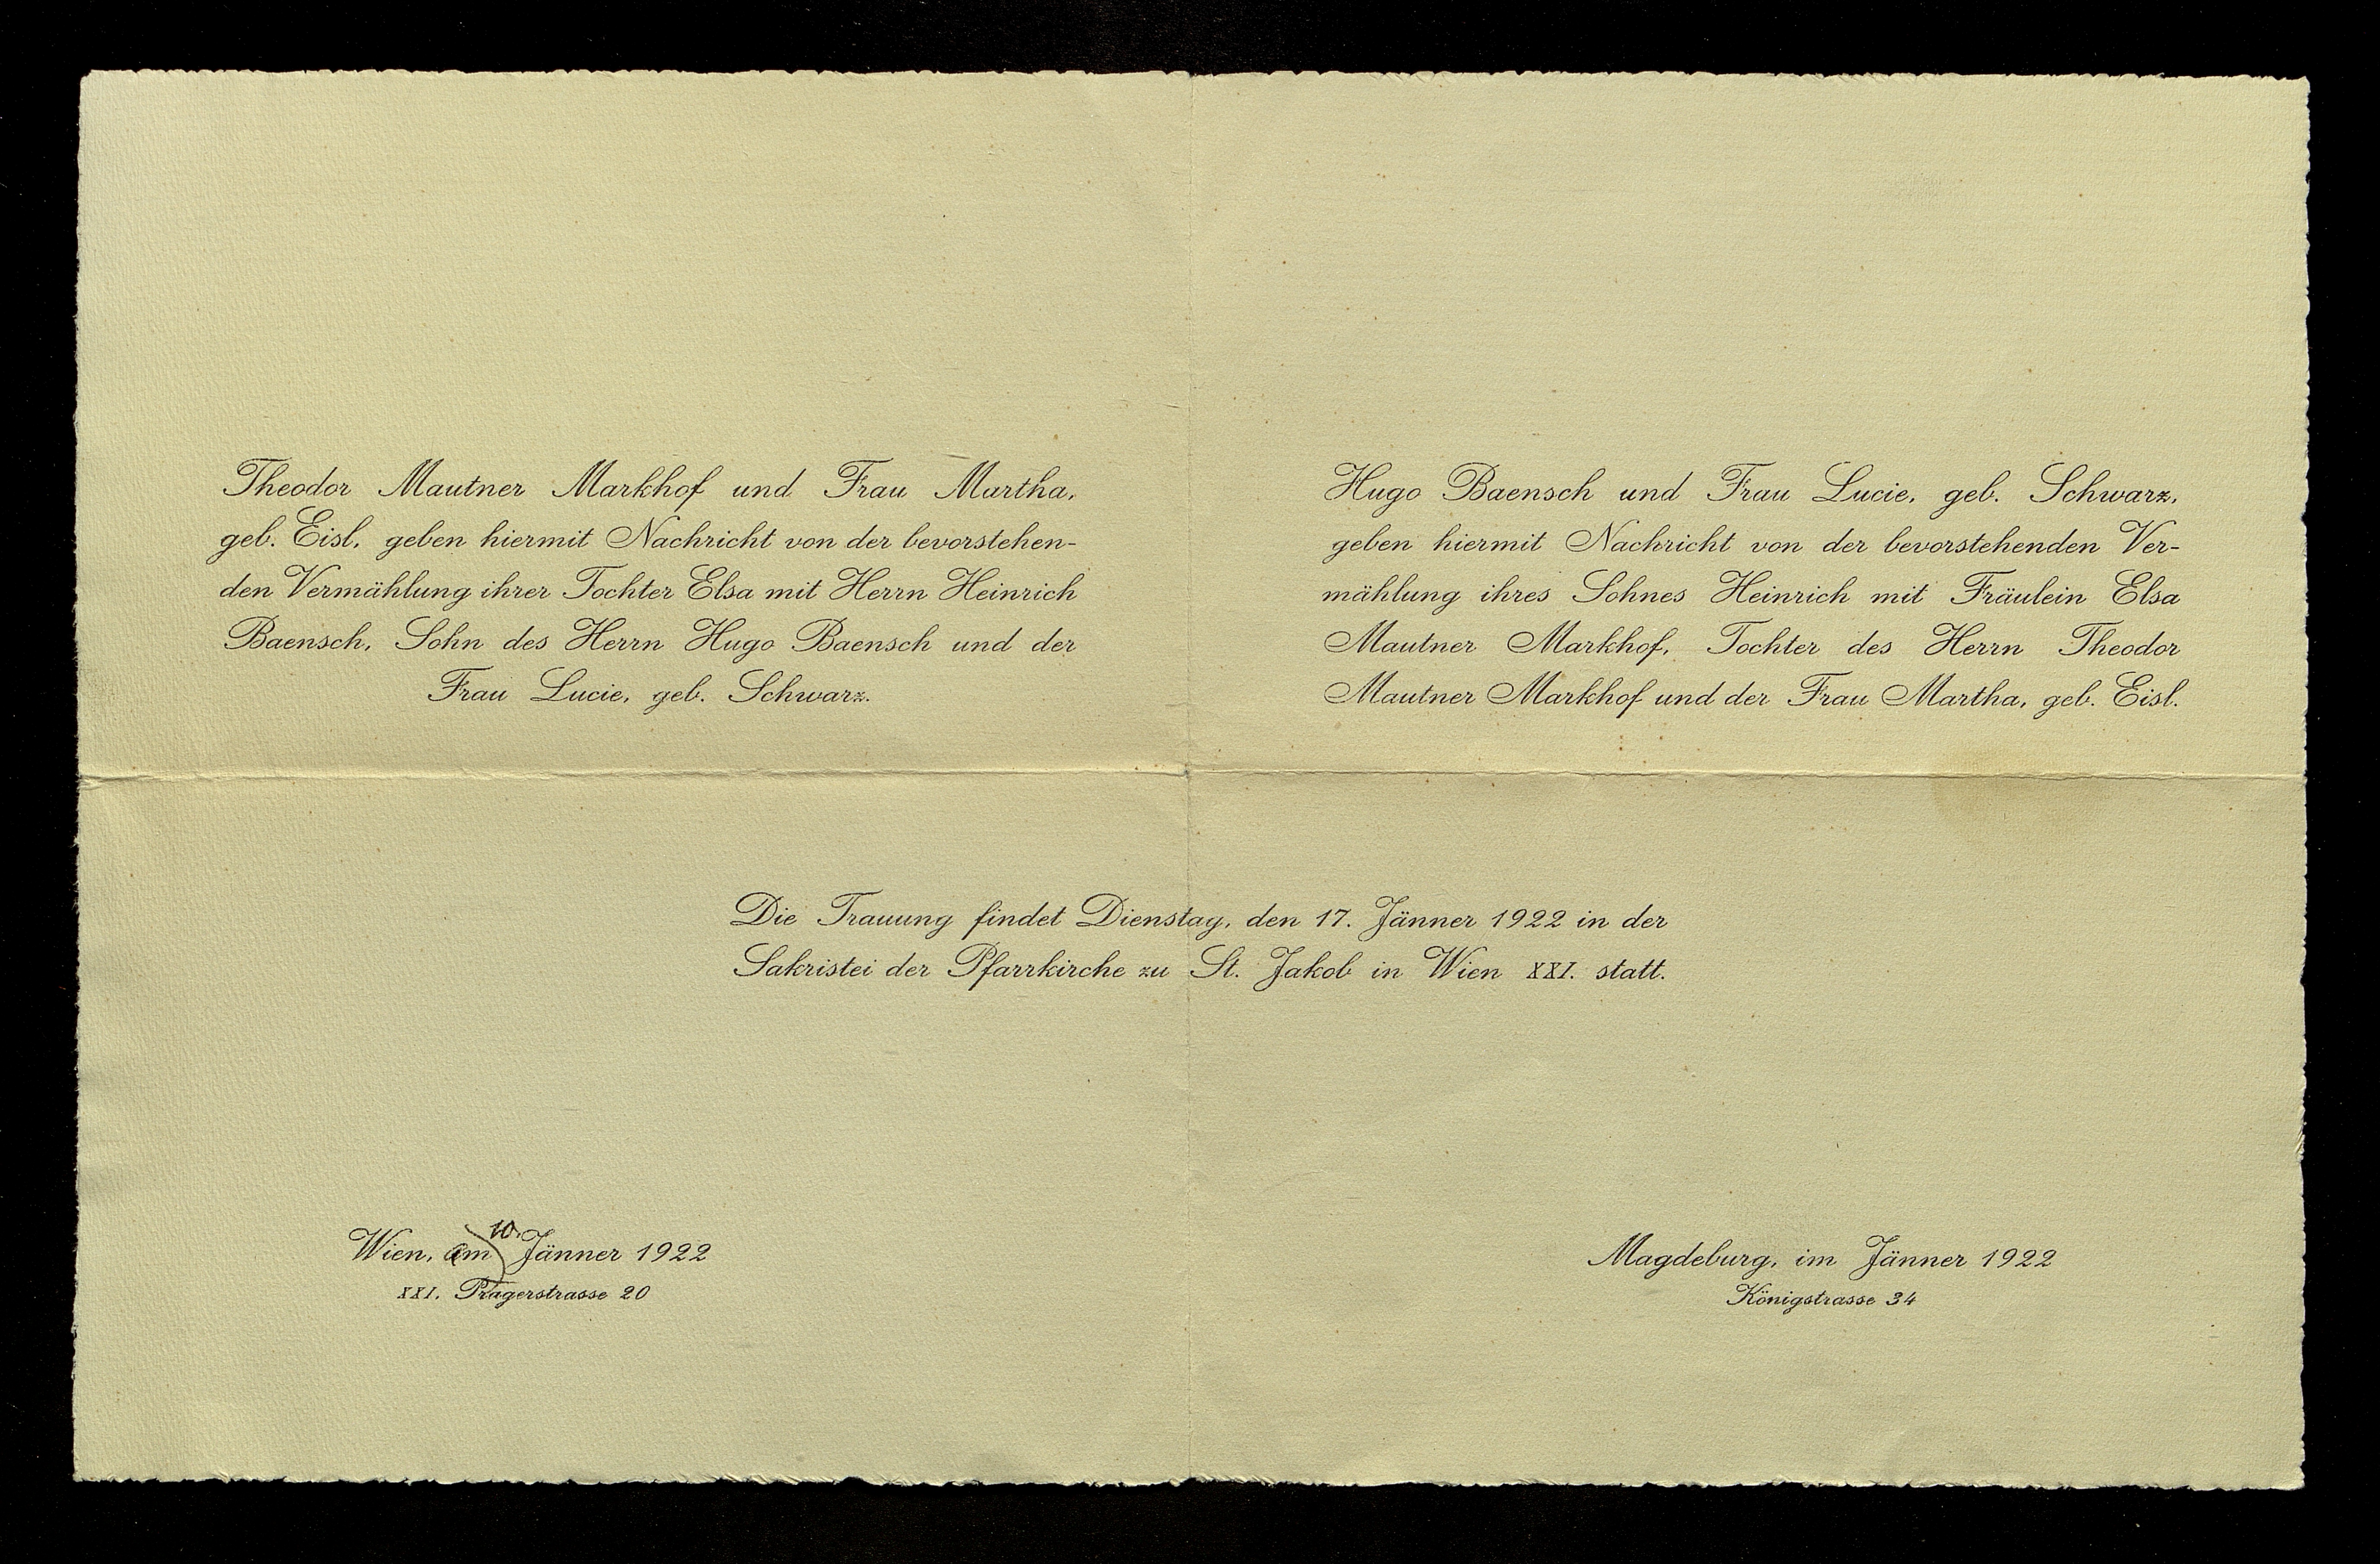 Theodor Mautner Markhof und Frau Martha,
geb. Eisl, geben hiermit Nachricht von der bevorstehen-
den Vermählung ihrer Tochter Elsa mit Herrn Heinrich
Baensch, Sohn des Herrn Hugo Baensch und der
Frau Lucie, geb. Schwarz.
Hugo Baensch und Frau Lucie, geb. Schwarz,
geben hiermit Nachricht von der bevorstehenden Ver-
mählung ihres Sohnes Heinrich mit Fräulein Elsa
Mautner Markhof, Tochter des Herrn Theodor
Mautner Markhof und der Frau Martha, geb. Eisl.
Die Trauung findet Dienstag, den 17. Jänner 1922 in der
Sakristei der Pfarrkirche zu St. Jakob in Wien XXI. statt.
Wien, am 10. Jänner 1922
XXI. Pragerstrasse 20
Magdeburg, im Jänner 1922
Königstrasse 34